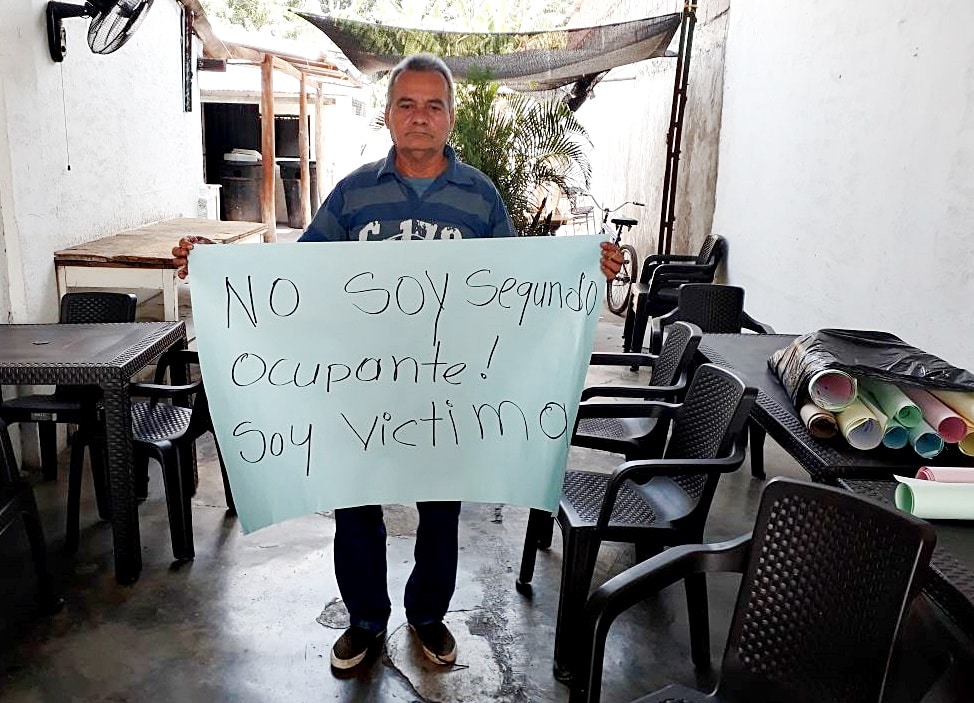 NO SOY Segundo
Ocupante!
Soy Victima